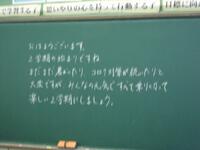 で学習する子
思いやりの心を持って行動する子
目標に向
おはようございます。
2学期の始まりですね
まだまだ暑かったり、コロナ対策が続いたりと
大変ですが、みんなの元気ですてきになって
楽しい2学期にしましょう。